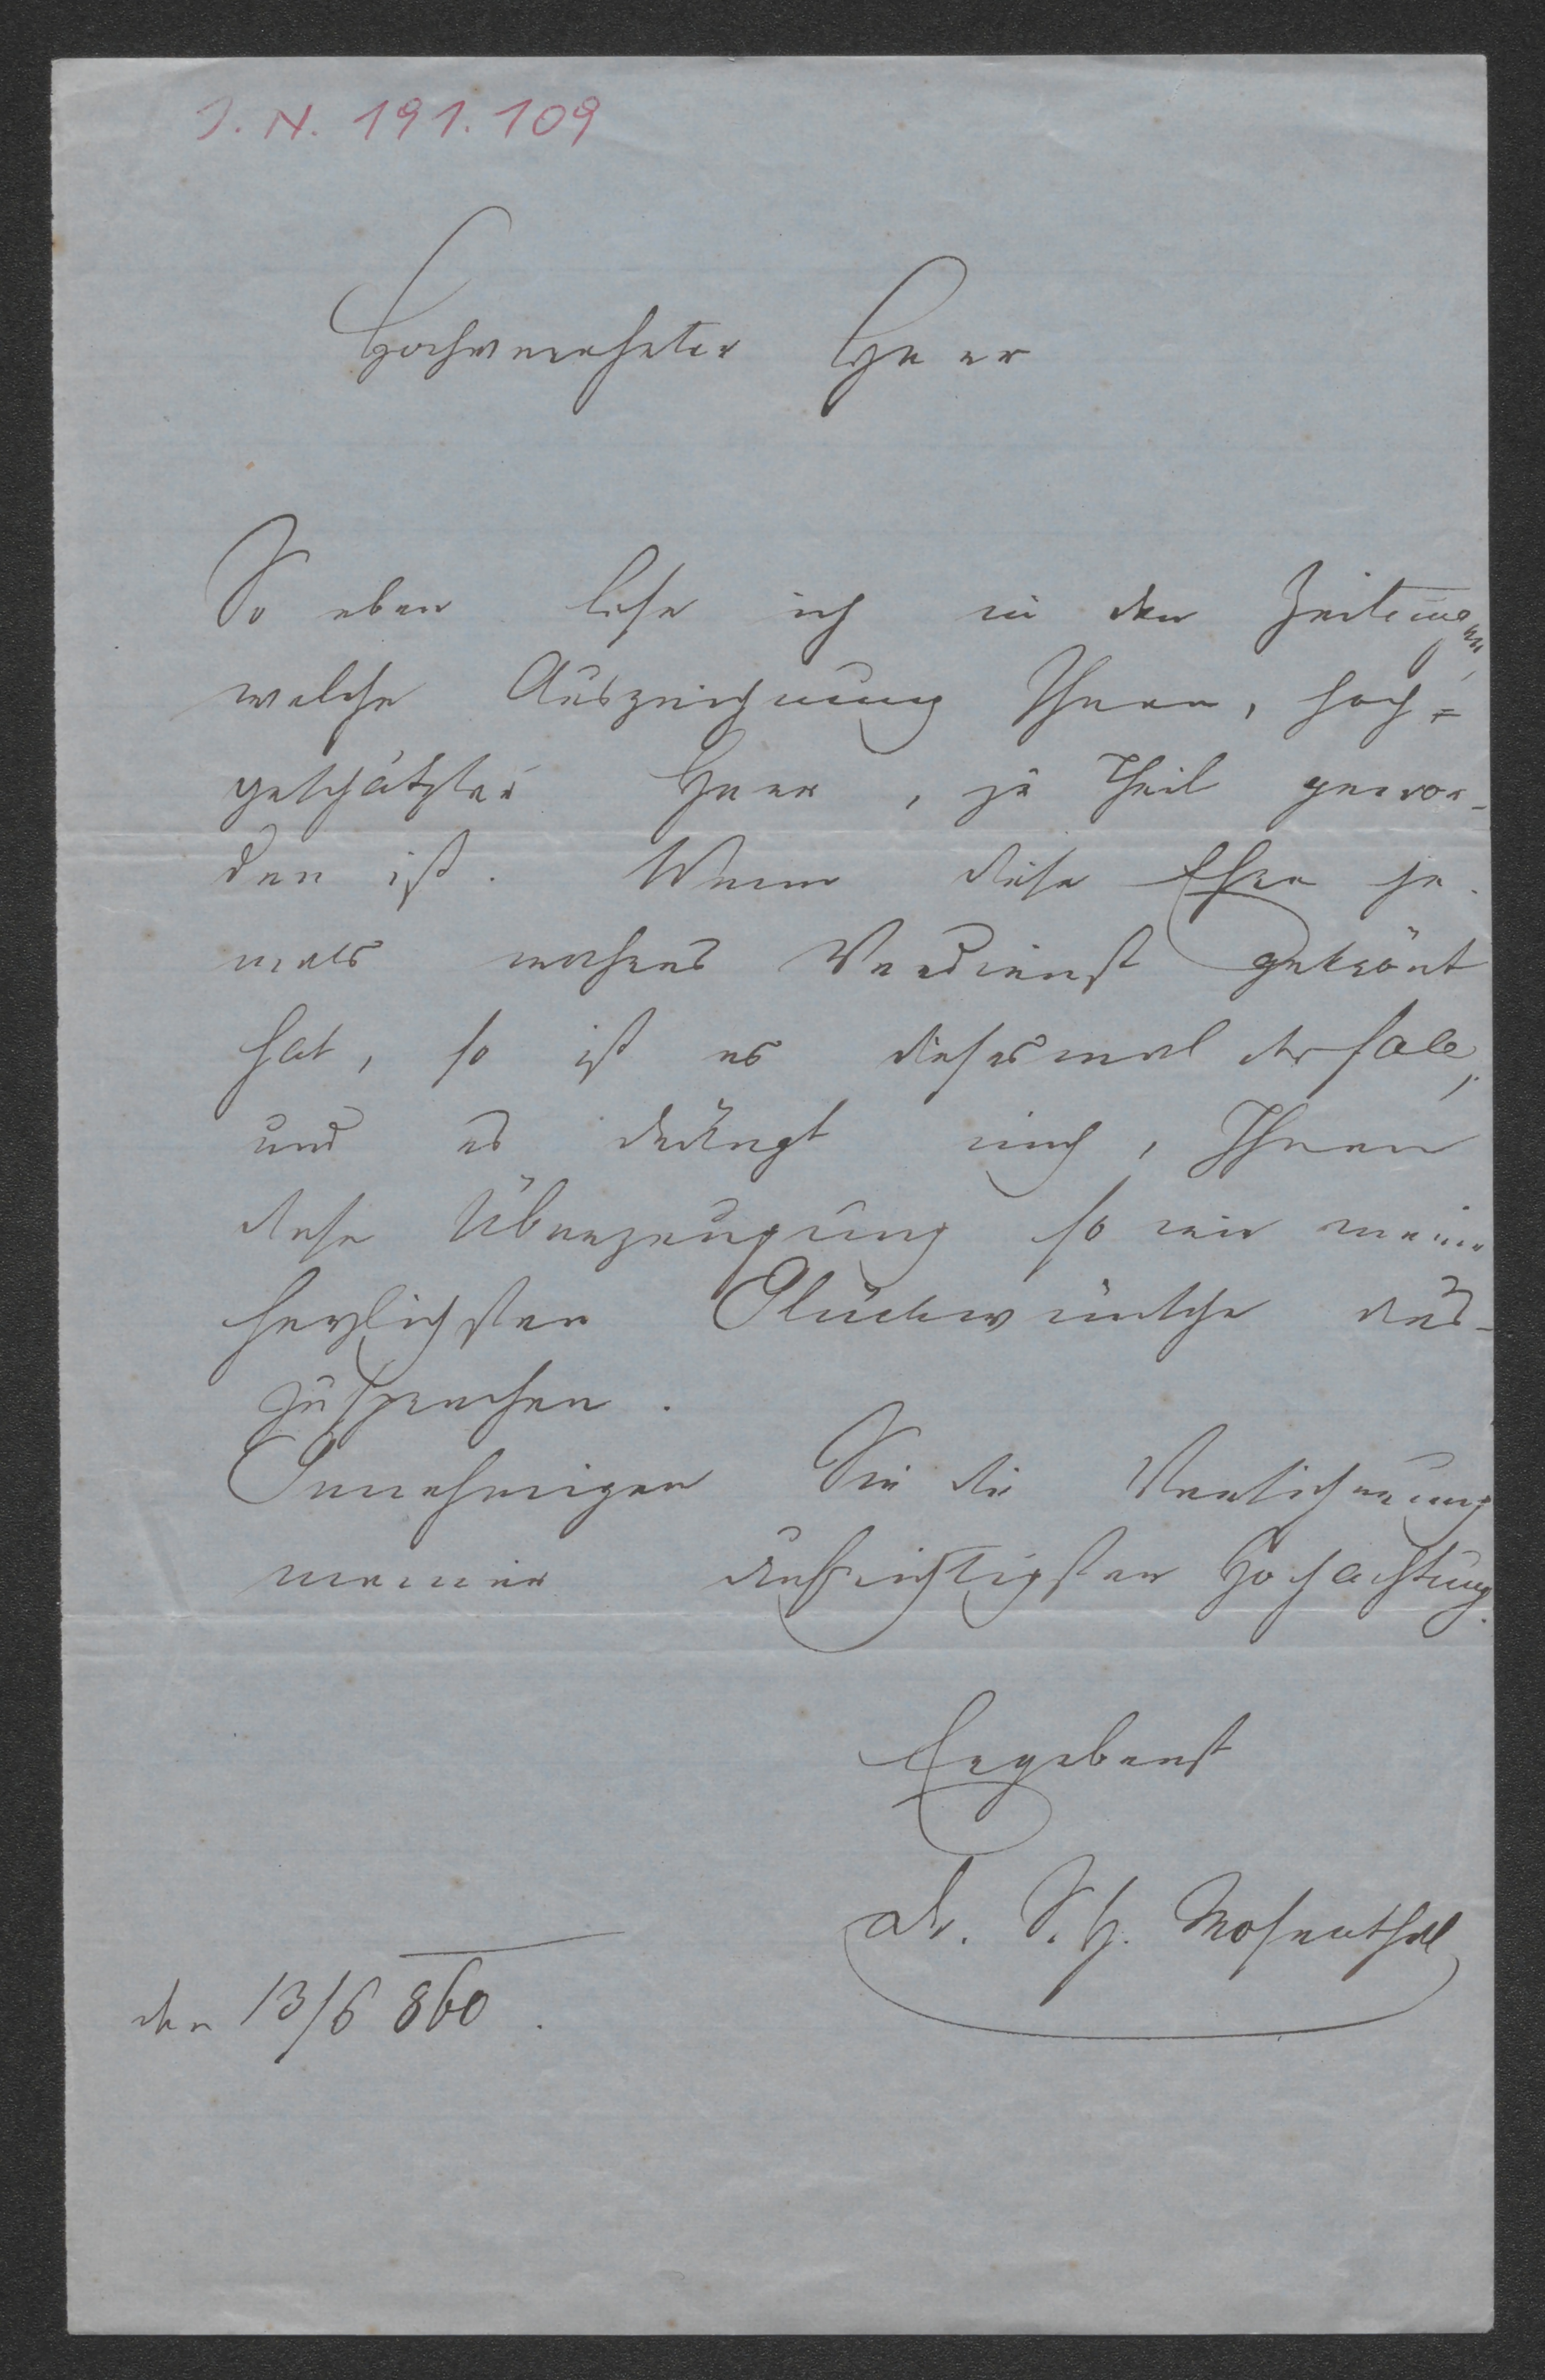 I. N. 191.109
Hochverehrter Herr
So eben lese ich in den Zeitungen,
welche Auszeichnung Ihnen, hoch=
geschätzter Herr, zu Theil gewor-
den ist. Wenn diese Ehre je-
mals wahres Verdienst gekrönt
hat, so ist es diesesmal der Fall,
und es drängt mich, Ihnen
diese Überzeugung so wie meine
herzlichsten Glückwünsche aus-
zusprechen.
Genehmigen Sie die Versicherung
meiner aufrichtigsten Hochachtung.
Ergebenst
Dr. S. H. Mosenthal
den 13/6 860.